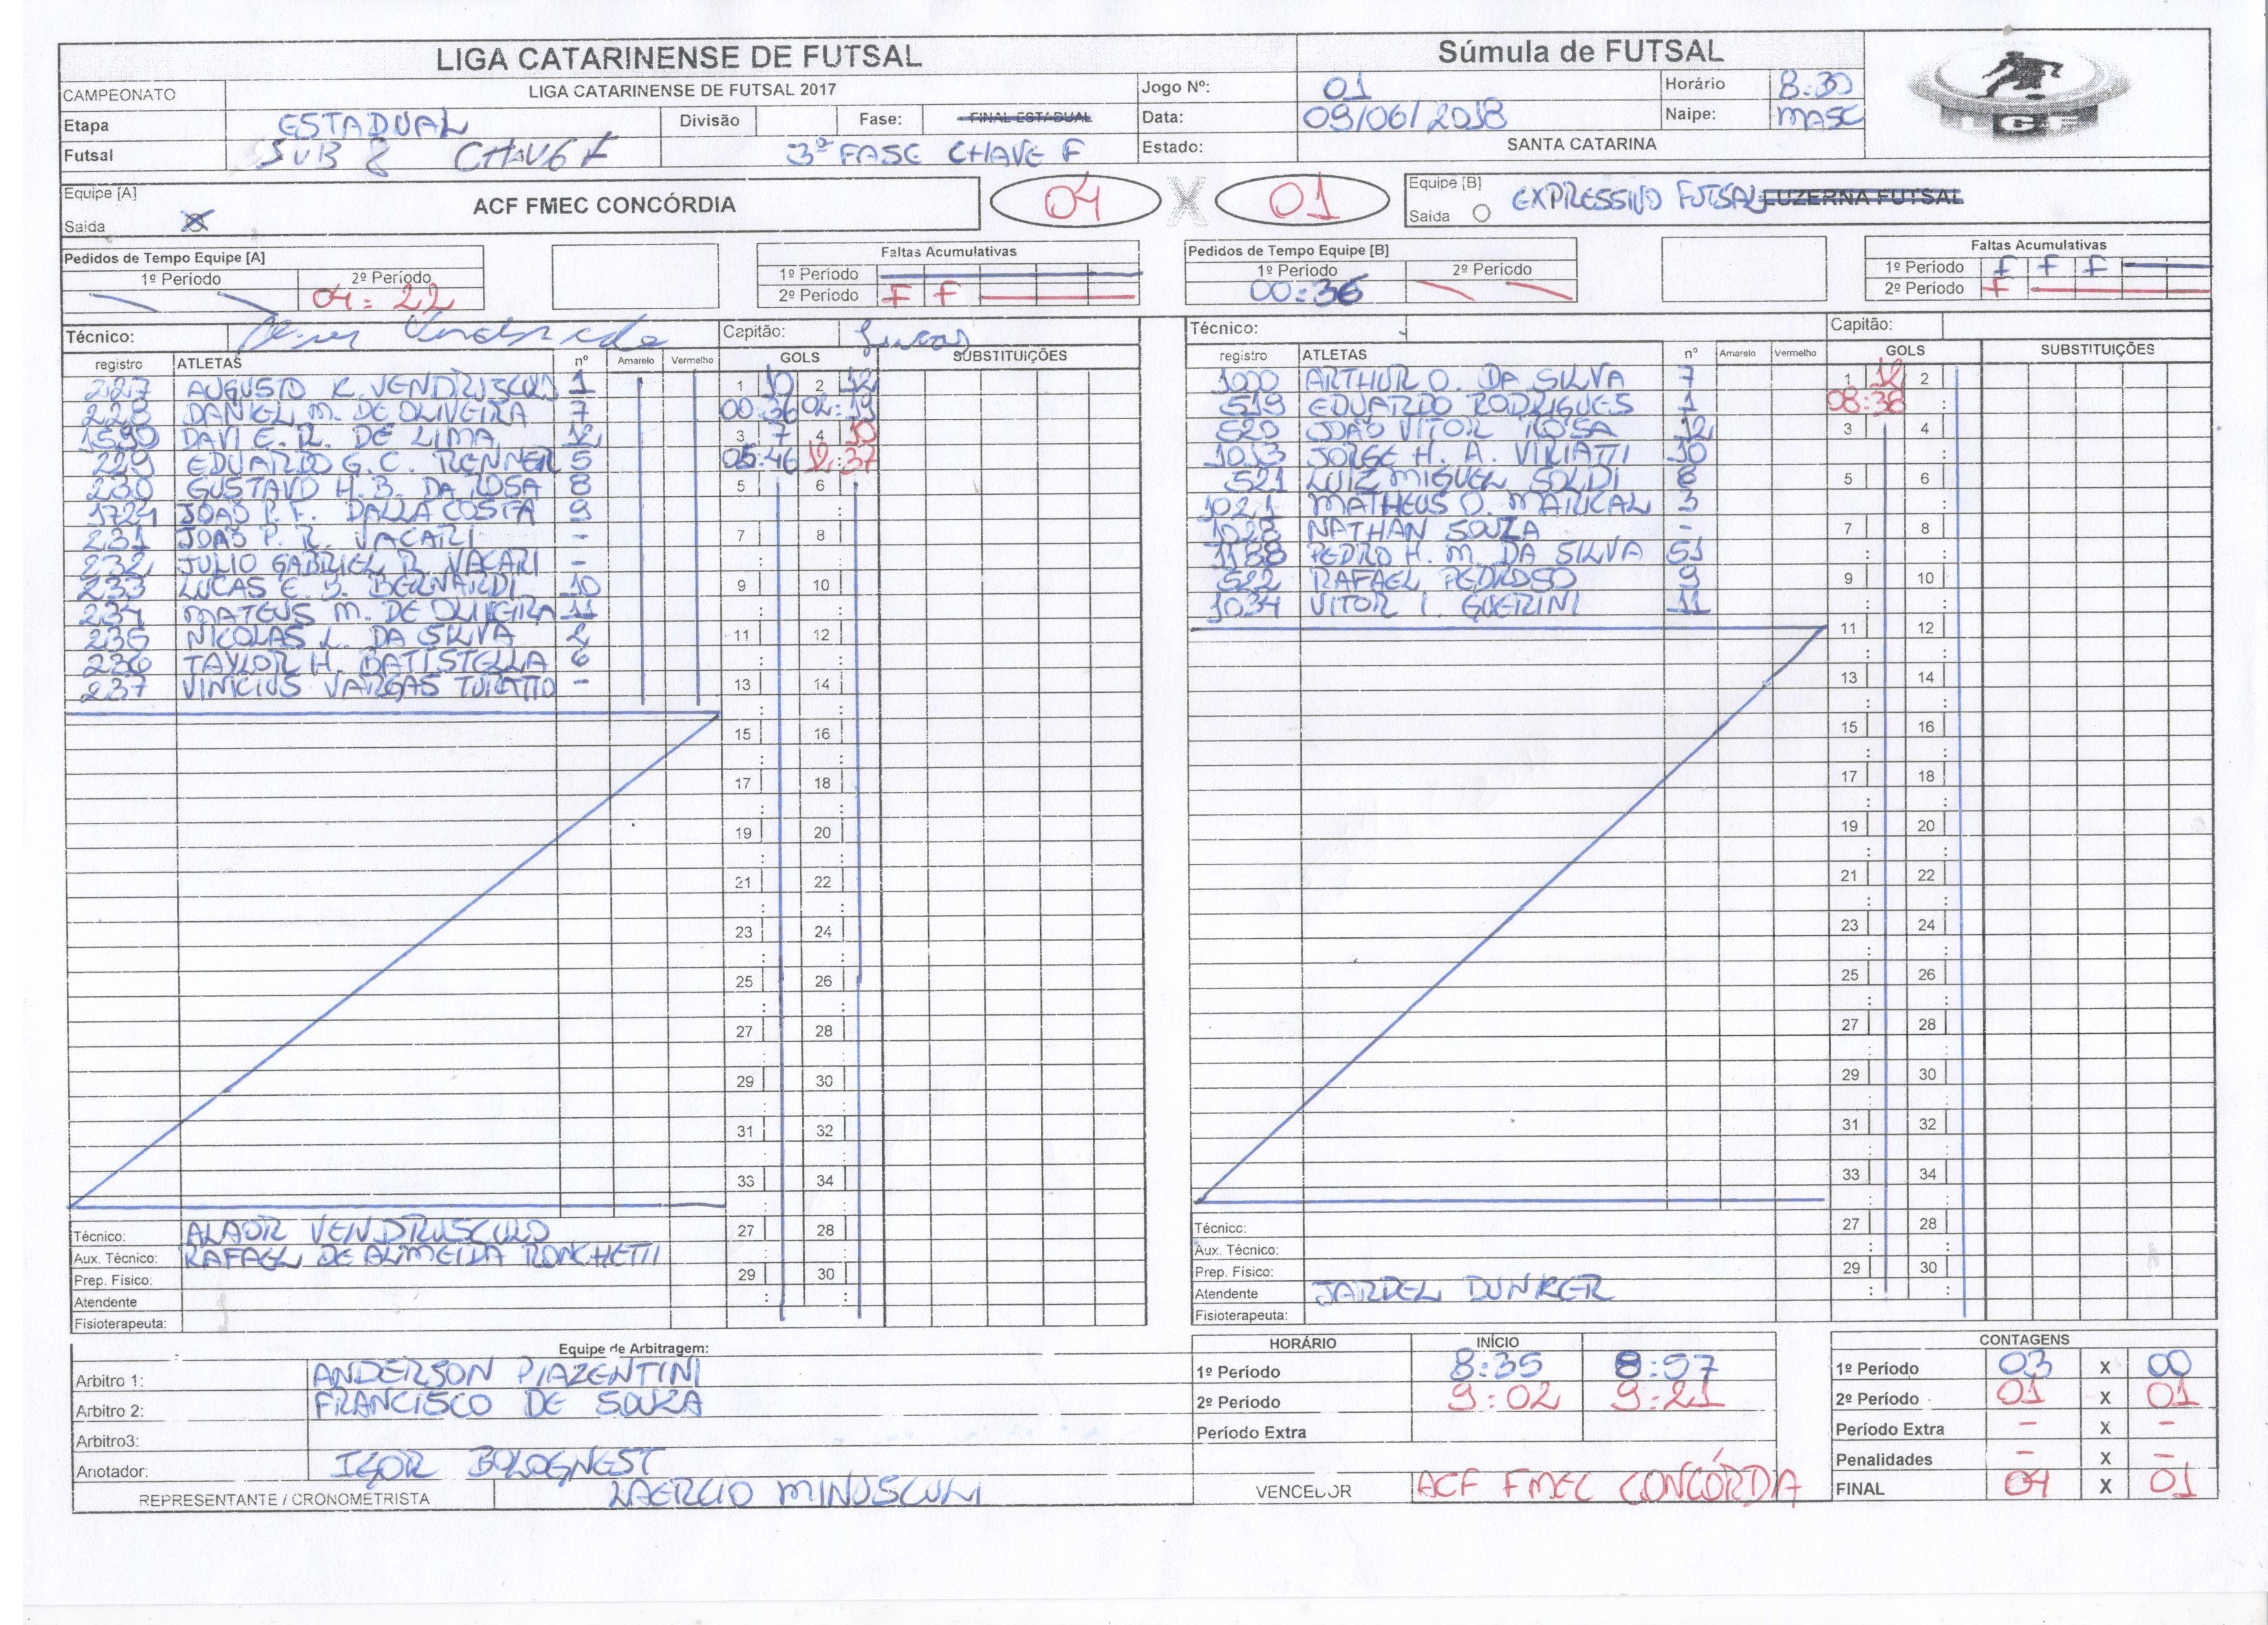 LIGA CATARINENSE DE FUTSAL
Súmula de FUTSAL
CAMPEONATO LIGA CATARINENSE DE FUTSAL 2017 Jogo Nº: 01 Horário 8:30
Etapa ESTADUAL Divisão Fase: FINAL ESTADUAL Data: 09/06/2018 Naipe: MASC
Futsal SUB 8 CHAVE F 3ª FASE CHAVE F Estado: SANTA CATARINA
LCF
Equipe [A] ACF FMEC CONCÓRDIA 04 X 01 Equipe [B] EXPRESSIVO FUTSAL LUZERNA FUTSAL
Saida X Saida O
Pedidos de Tempo Equipe [A] Faltas Acumulativas Pedidos de Tempo Equipe [B] Faltas Acumulativas
1º Período 2º Período 1º Período 1º Período 2º Período 1º Período F F F
04:22 2º Período F F 00:36 2º Período F
Técnico: Capitão: Lucas Técnico: Capitão:
registro ATLETAS nº Amarelo Vermelho GOLS SUBSTITUIÇÕES
227 AUGUSTO K. VENDRUSCULO 1 1 10 2 12
228 DANIEL M. DE OLIVEIRA 7 00:36 02:19
1590 DAVI E. R. DE LIMA 12 3 7 4 10
229 EDUARDO G. C. RENNER 5 05:46 12:37
230 GUSTAVO H. B. DA ROSA 8 5 6
1724 JOAO P. F. DALLA COSTA 9 : :
231 JOAO P. R. VACARI - 7 8
232 JULIO GABRIEL R. VACARI - : :
233 LUCAS E. B. BERNARDI 10 9 10
234 MATEUS M. DE OLIVEIRA 11 : :
235 NICOLAS L. DA SILVA 2 11 12
236 TAYLOR H. BATISTELLA 6 : :
237 VINICIUS VARGAS - 13 14
15 16
17 18
19 20
21 22
23 24
25 26
27 28
29 30
31 32
33 34
Técnico: ALAOR VENDRUSCULO 27 28
Aux. Técnico: RAFAEL DE ALMEIDA RONCHETTI
Prep. Físico: 29 30
Atendente
Fisioterapeuta:
registro ATLETAS nº Amarelo Vermelho GOLS SUBSTITUIÇÕES
1000 ARTHUR O. DA SILVA 7 1 12 2
519 EDUARDO RODRIGUES 1 08:38 :
520 JOÃO VITOR ROSA 12 3 4
1013 JORGE H. A. VIRIATTI 10
521 LUIZ MIGUEL SOLDI 8 5 6
1021 MATHEUS O. MARICAL 3 :
1028 NATHAN SOUZA - 7 8
1188 PEDRO H. M. DA SILVA 51 : :
522 RAFAEL PEDROSO 9 9 10
1034 VITOR I. GUERINI 11 : :
11 12
13 14
15 16
17 18
19 20
21 22
23 24
25 26
27 28
29 30
31 32
33 34
Técnico: 27 28
Aux. Técnico:
Prep. Físico: 29 30
Atendente JARDEL DUNKER
Fisioterapeuta:
Equipe de Arbitragem:
Arbitro 1: ANDERSON PIAZENTINI
Arbitro 2: FRANCISCO DE SOUZA
Arbitro3:
Anotador: IGOR BOLOGNEST
REPRESENTANTE / CRONOMETRISTA LAERCIO MINUSCULI
HORÁRIO INÍCIO
1º Período 8:35 8:57
2º Período 9:02 9:21
Período Extra
VENCEDOR ACF FMEC CONCÓRDIA
CONTAGENS
1º Período 03 X 00
2º Período 01 X 01
Período Extra - X -
Penalidades - X -
FINAL 04 X 01